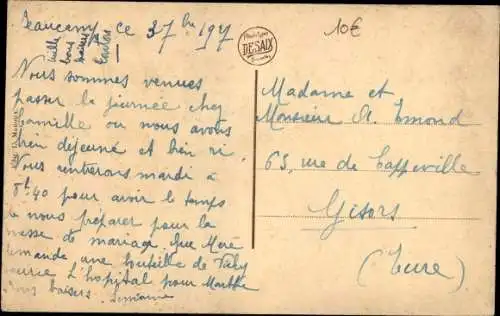 ce 37bre 1927
10€
mille
bons
baisers
de
Phototypie
DESAIX
Nous sommes venues
passer la journée chez
Camille où nous avons
bien déjeuné et bien ri.
Nous rentrerons mardi à
8h40 pour avoir le temps
de nous préparer pour la
messe de mariage. Que Mère
demande une bouteille de
L'hopital pour Marthe
Bons baisers. Simonne
Madame et
Monsieur St. Emond
63, rue de Cappeville
Gisors
(Eure)